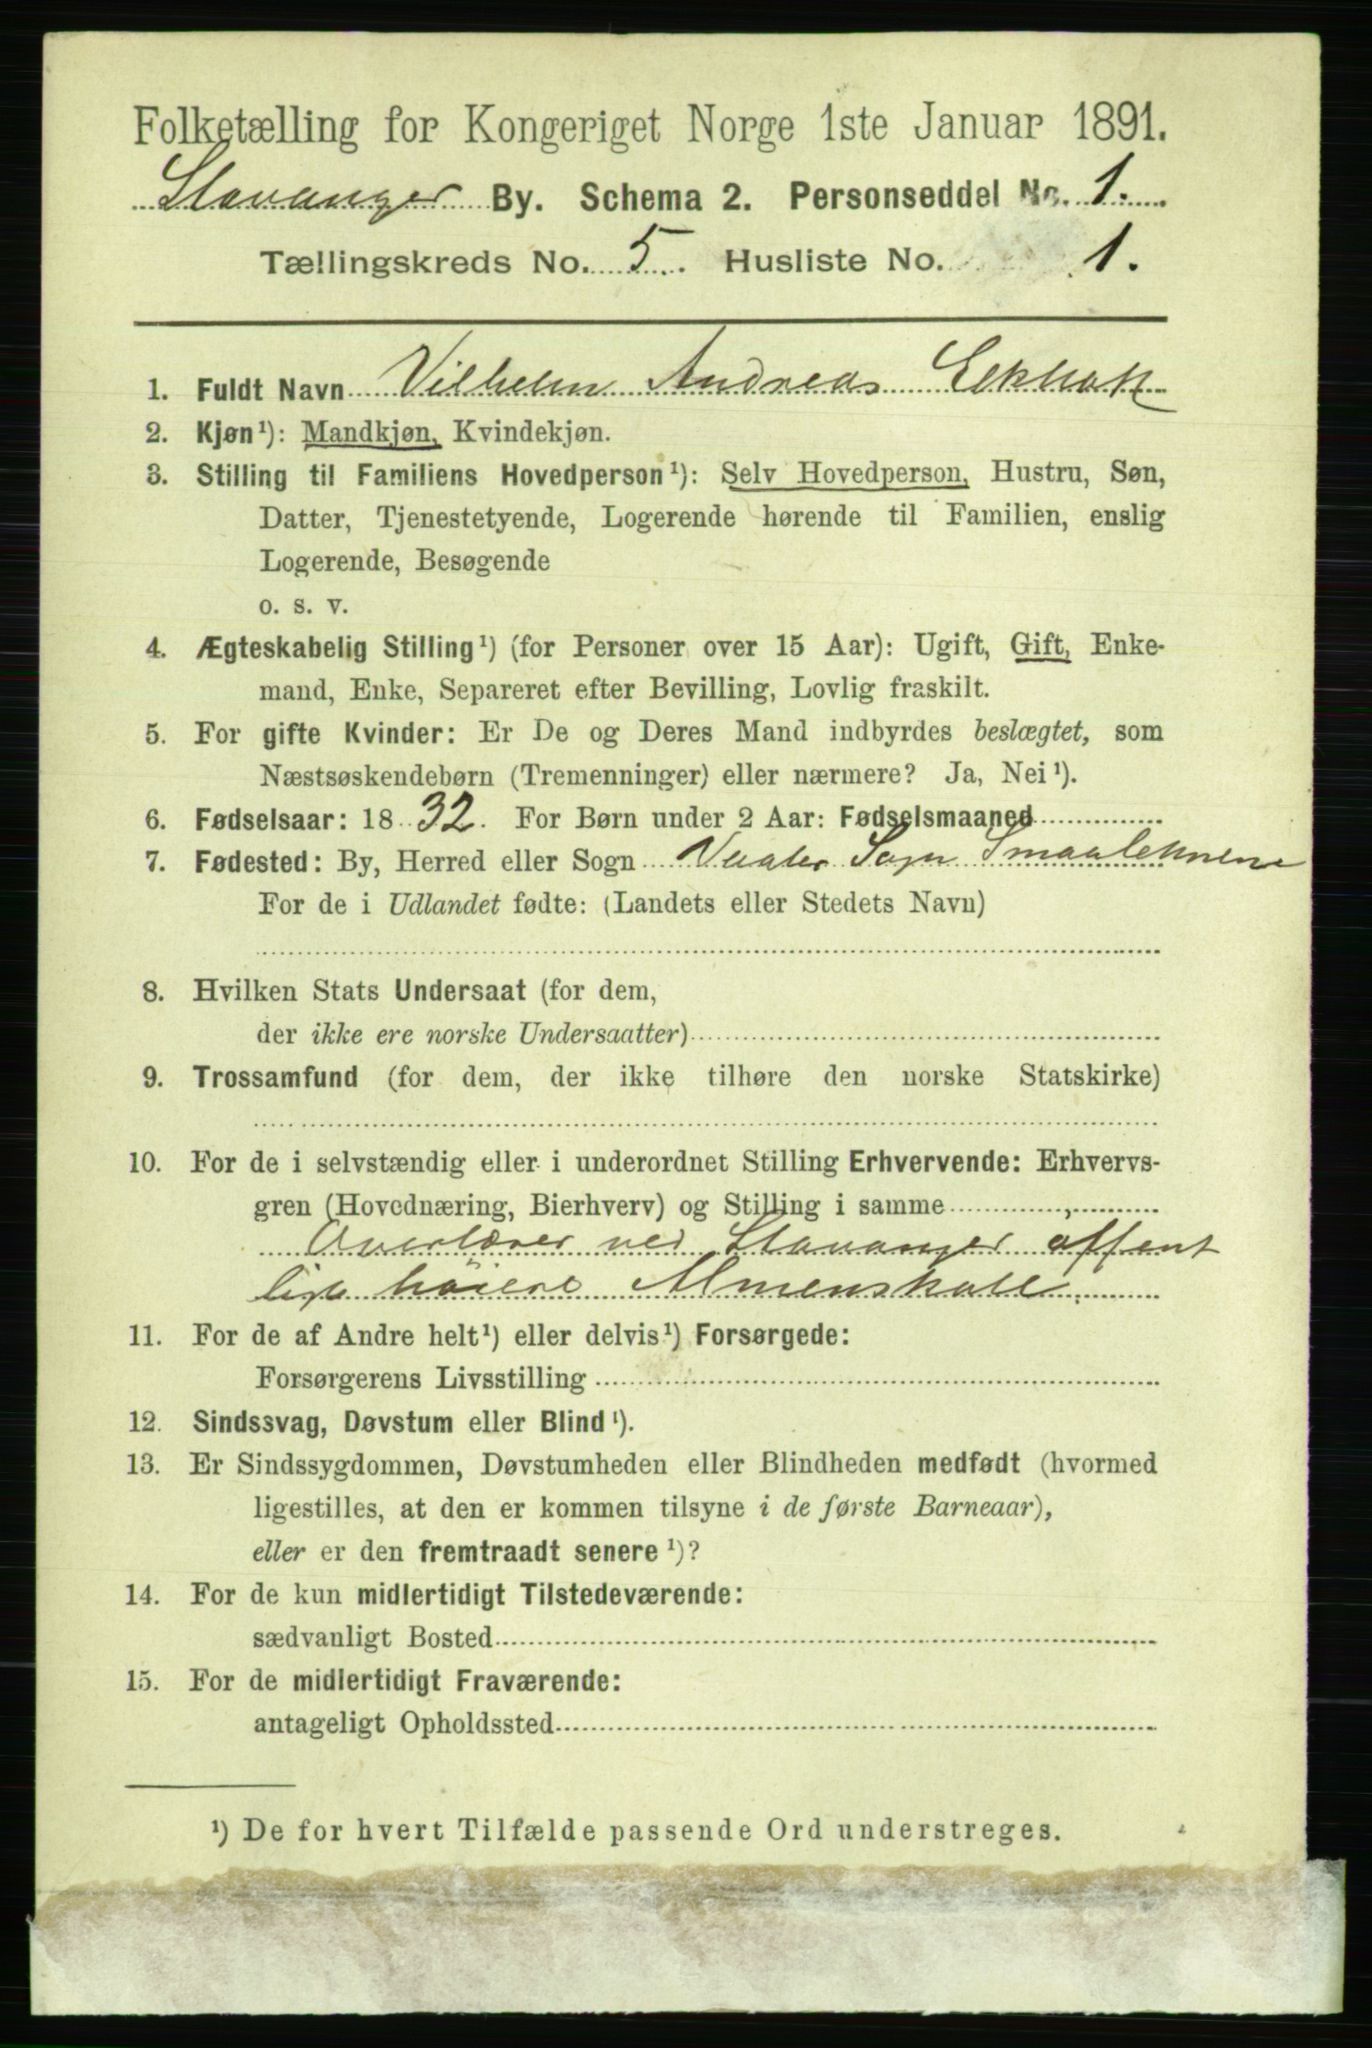 Folketælling for Kongeriget Norge 1ste Januar 1891.
Stavanger By. Schema 2. Personseddel No. 1.
Tællingskreds No. 5. Husliste No. 1.
1. Fuldt Navn Vilhelm Andreas Eckhoff
2. Kjøn¹): Mandkjøn, Kvindekjøn.
3. Stilling til Familiens Hovedperson¹): Selv Hovedperson, Hustru, Søn,
Datter, Tjenestetyende, Logerende hørende til Familien, enslig
Logerende, Besøgende
o. s. v.
4. Ægteskabelig Stilling¹) (for Personer over 15 Aar): Ugift, Gift, Enke-
mand, Enke, Separeret efter Bevilling, Lovlig fraskilt.
5. For gifte Kvinder: Er De og Deres Mand indbyrdes beslægtet, som
Næstsøskendebørn (Tremenninger) eller nærmere? Ja, Nei¹).
6. Fødselsaar: 1832. For Børn under 2 Aar: Fødselsmaaned
7. Fødested: By, Herred eller Sogn Vaaler Sogn Smaalehnene
For de i Udlandet fødte: (Landets eller Stedets Navn)
8. Hvilken Stats Undersaat (for dem,
der ikke ere norske Undersaatter)
9. Trossamfund (for dem, der ikke tilhøre den norske Statskirke)
10. For de i selvstændig eller i underordnet Stilling Erhvervende: Erhvervs-
gren (Hovednæring, Bierhverv) og Stilling i samme
Overlærer ved Stavanger offent
lige höiere Almenskole.
11. For de af Andre helt¹) eller delvis¹) Forsørgede:
Forsørgerens Livsstilling
12. Sindssvag, Døvstum eller Blind¹).
13. Er Sindssygdommen, Døvstumheden eller Blindheden medfødt (hvormed
ligestilles, at den er kommen tilsyne i de første Barneaar),
eller er den fremtraadt senere¹)?
14. For de kun midlertidigt Tilstedeværende:
sædvanligt Bosted
15. For de midlertidigt Fraværende:
antageligt Opholdssted
¹) De for hvert Tilfælde passende Ord understreges.